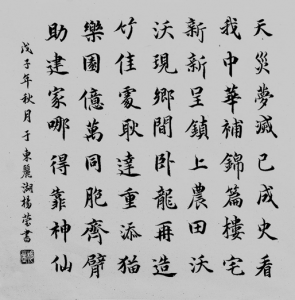 天災夢滅已成史看
我中華補錦篇樓宅
新新呈鎮上農田沃
沃現鄉間卧龍再造
竹佳處耿達重添猫
樂園億萬同胞齊臂
助建家哪得靠神仙
戊子年秋月于東麗湖楊莹書